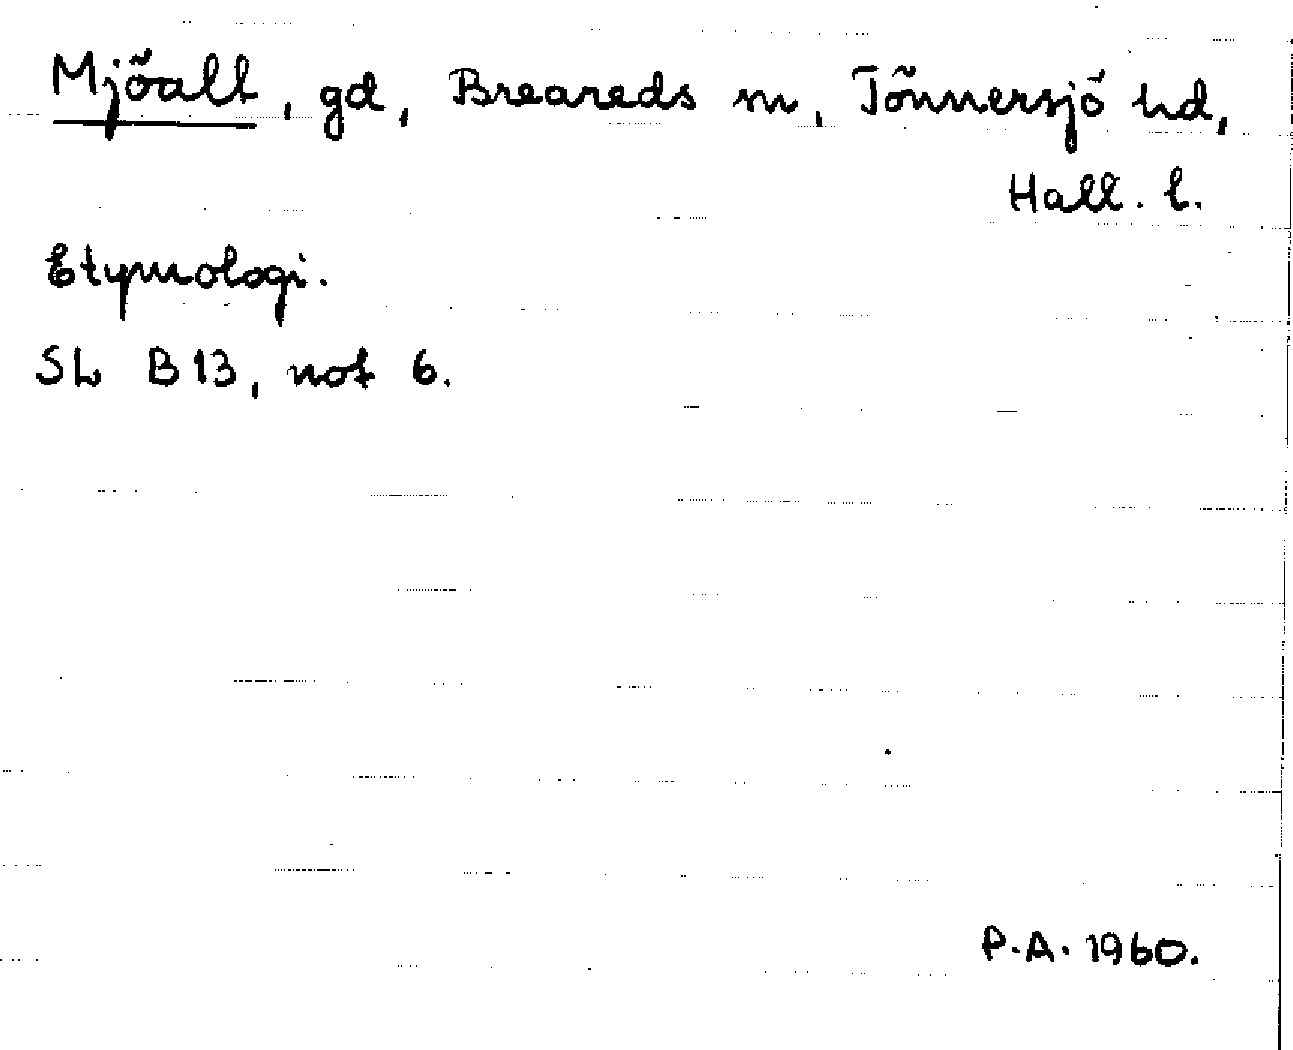 Mjöalt, gd, Breareds sn, Tönnersjö hd,
Hall. l.
Etymologi.
SL B13, not 6.
P.A. 1960.